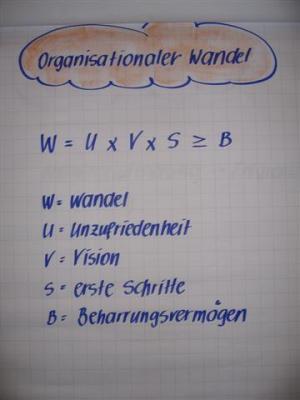 Organisationaler Wandel
W = U x V x S ≥ B
W = Wandel
U = Unzufriedenheit
V = Vision
S = erste Schritte
B = Beharrungsvermögen